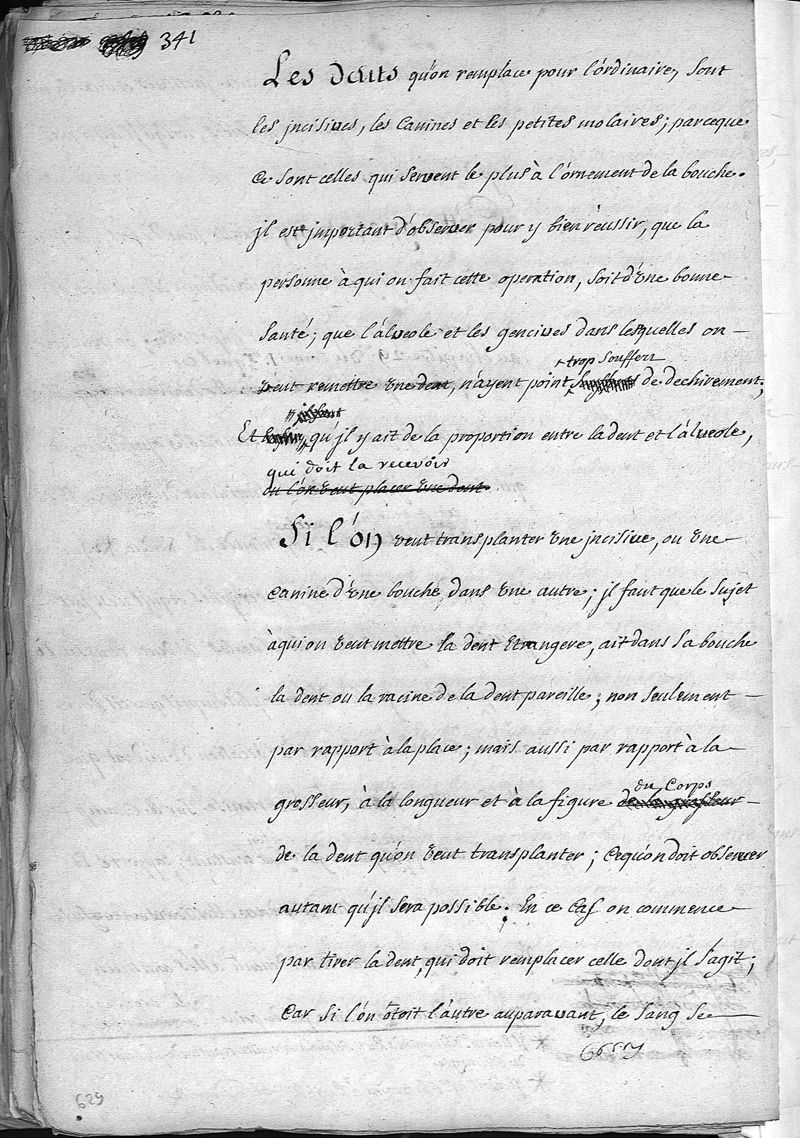 341
Les Dents qu'on remplace pour l'ordinaire, sont
les jncisives, les Canines et les petites molaires; parceque
Ce sont celles qui servent le plus à l'ornement de la bouche.
jl est jmportant d'observer pour y bien reussir, que la
personne à qui on fait cette operation, soit d'une bonne
Santé; que l'alveole et les gencives dans lesquelles on
trop souffert
veut remettre une dent, n'ayent point de dechirement;
Et qu'jl y ait de la proportion entre la dent et l'alveole,
qui doit la recevoir
ou l'on veut placer une dent.
Si l'on veut transplanter une jncisive, ou une
Canine d'une bouche dans une autre; jl faut que le Sujet
à qui on veut mettre la dent Etrangere, ait dans sa bouche
la dent ou la racine de la dent pareille; non seulement
par rapport à la place; mais aussi par rapport à la
du Corps
grosseur, à la longueur et à la figure
de la dent qu'on veut transplanter; Ce qu'on doit observer
autant qu'jl sera possible. En ce Cas on commence
par tirer la dent, qui doit remplacer celle dont jl s'agit;
Car si l'on ôtoit l'autre auparavant, le sang se
629